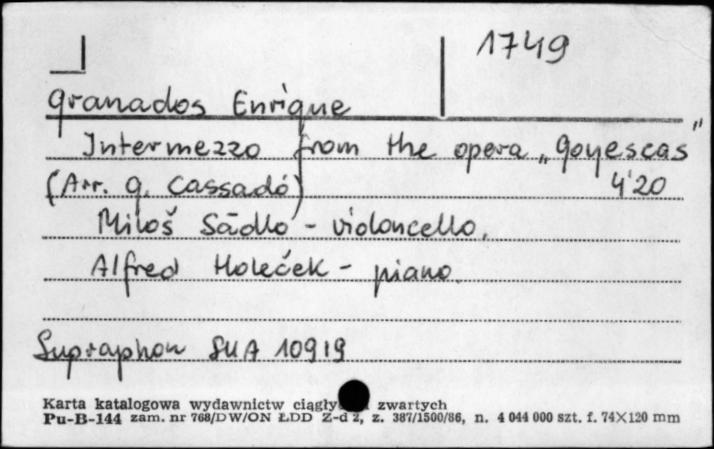 1749
Granados Enrique
Intermezzo from the opera „Goyescas"
(Arr. G. Cassadó) 4'20
Miloš Sádlo - violoncello
Alfred Holeček - piano
Supraphon SUA 10919
Karta katalogowa wydawnictw ciągły zwartych
Pu-B-144 zam. nr 768/DW/ON ŁDD Z-d 2, z. 387/1500/86, n. 4 044 000 szt. f. 74×120 mm